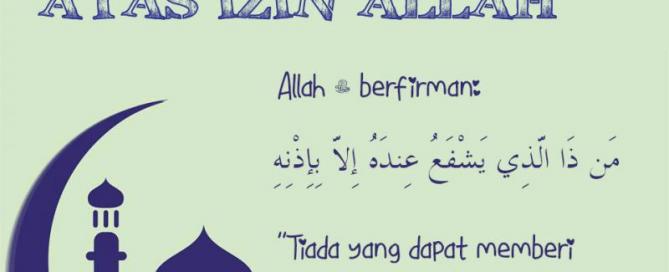 ATAS IZIN ALLAH
Allah ﷻ berfirman:
مَن ذَا الَّذِي يَشْفَعُ عِندَهُ إِلاَّ بِإِذْنِهِ
"Tiada yang dapat memberi